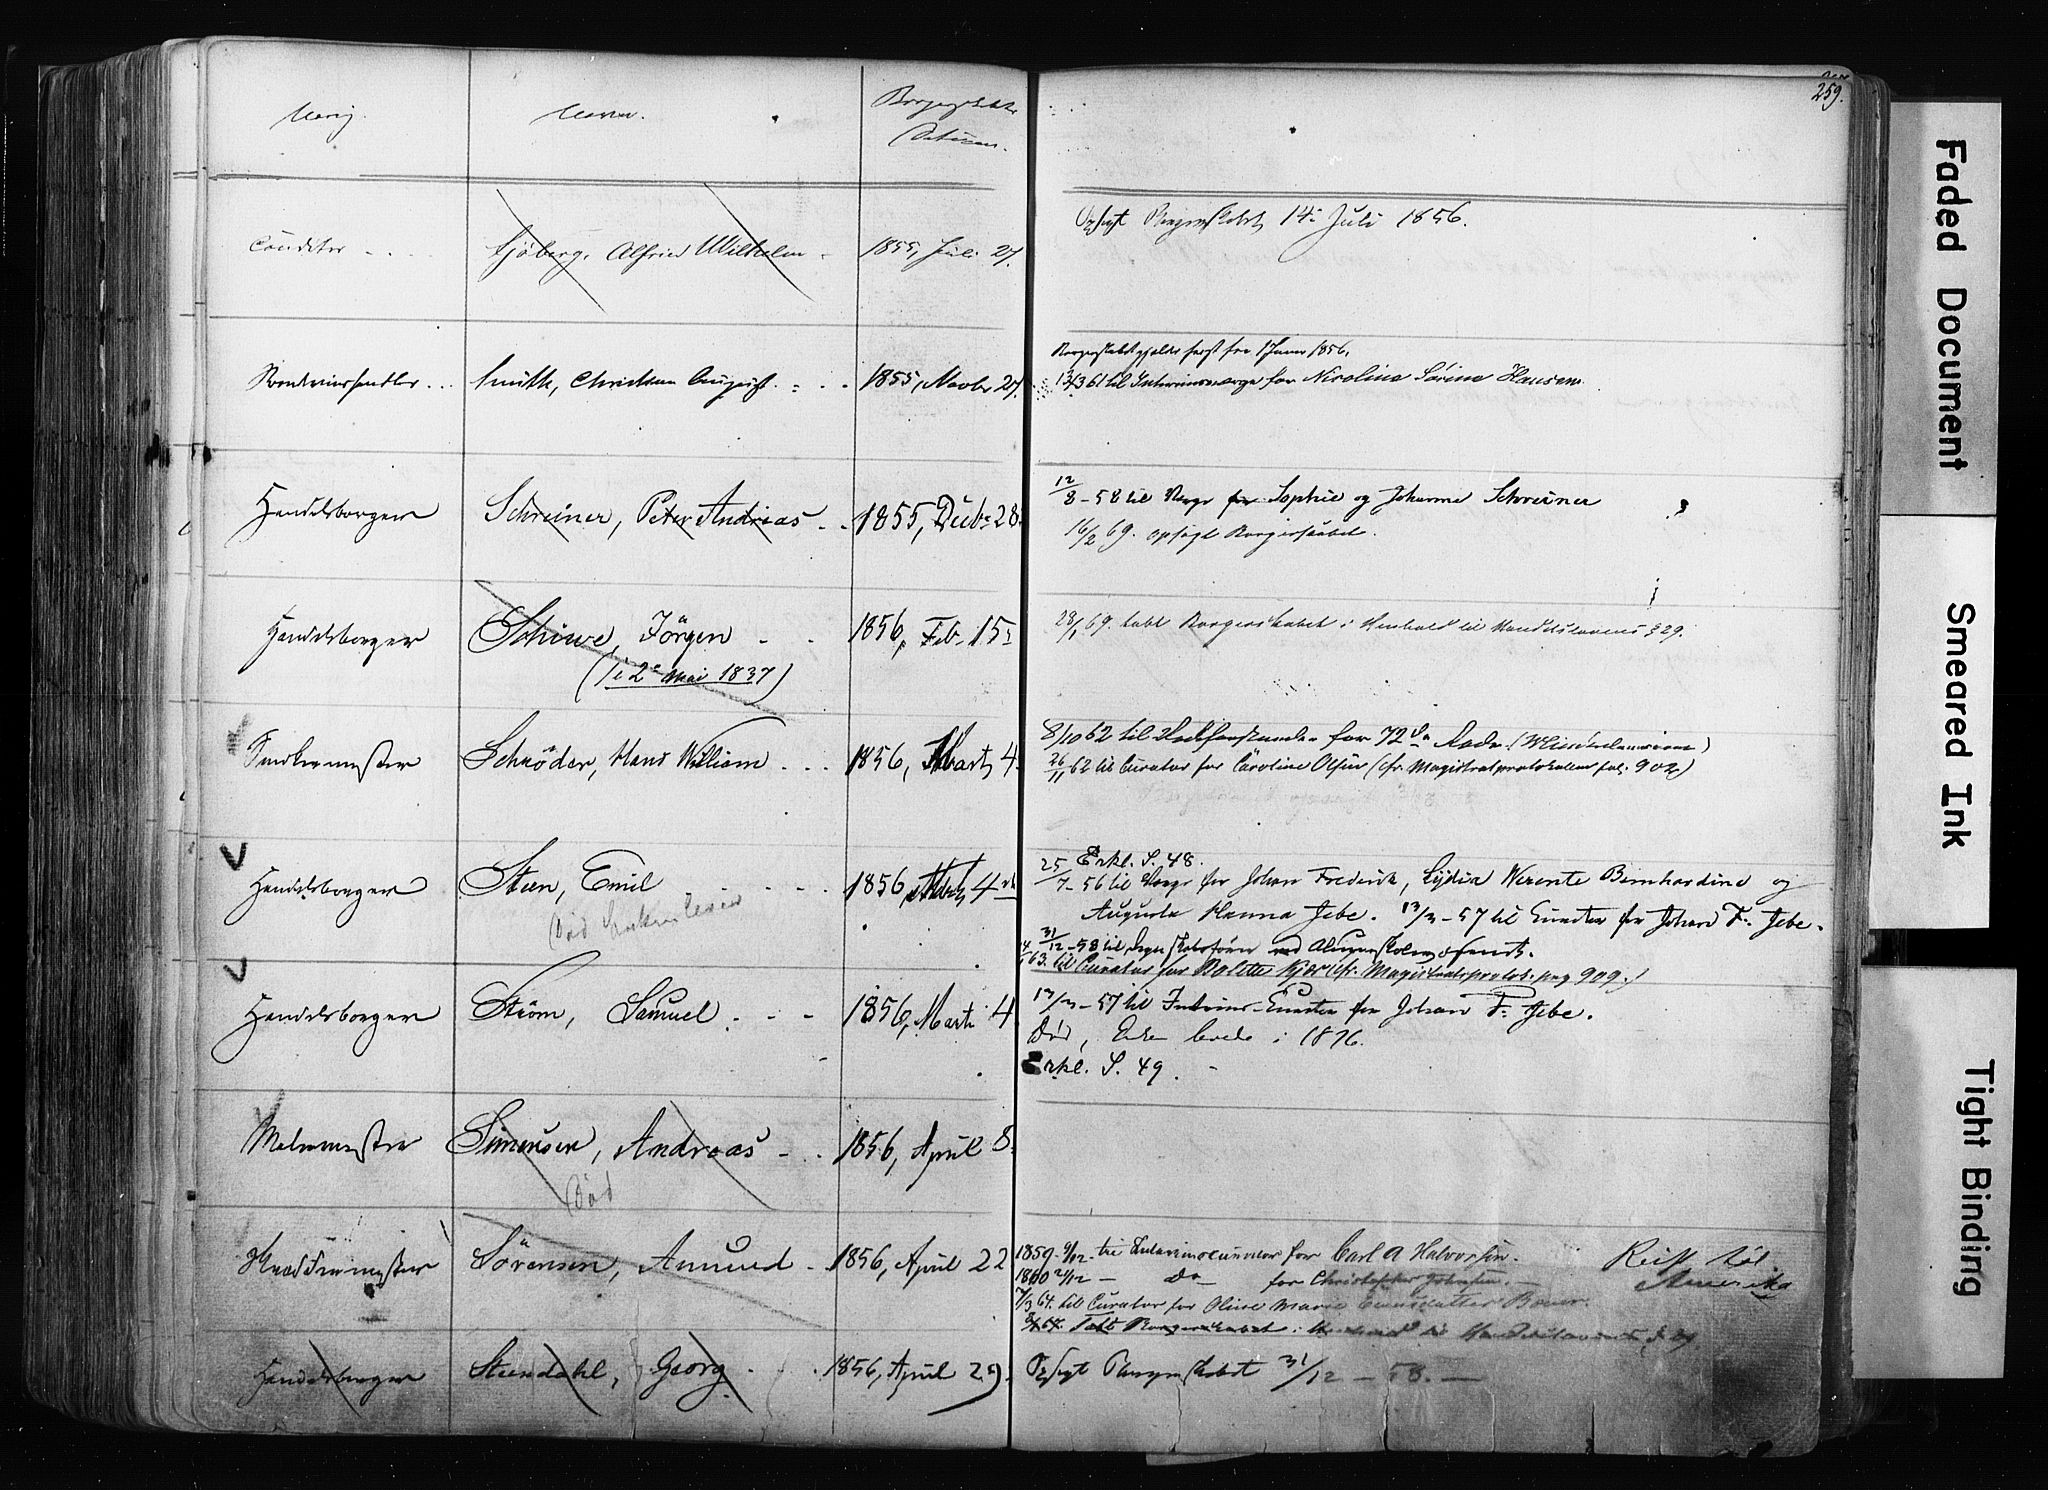 259.
Næring. Navn. Borgerskabets
Datum.
Conditor Sjöberg, Alfried Wilhelm 1855, Juli 27. Opsagt Borgerskabet 14de Juli 1856.
Smith, Christian August 1855, Novbr 27. Borgerskabet gjælder først fra 1 Januar 1856.
13/3 61 til Interimsværge for Nicoline Sörine Hansen
Handelsborger Schreiner, Peter Andreas 1855, Decbr 28. 12/8 - 58 til Værge for Sophie og Johanne Schreiner
16/2 69. opsagt Borgerskabet.
Handelsborger Schiwe, Jörgen 1856, Feb. 15 28/1 69. tabt Borgerskabet i Henhold til Handelslovens § 29.
(2 Mai 1837)
Snedkermester Schröder, Hans William 1856, Marts 4. 8/10 62 til for 72de Rode
26/11 62 til Curator for Caroline Olsen (cfr. Magistratsprotokollen fol. 902)
Erkl. S. 48.
Handelsborger Steen, Emil 1856, Marts 4 25/7 - 56 til Værge for Johan Frederik, Lydia Werente Bernhardine og
Död Enken lever
Augusta Hanna Jebe. 13/3 - 57 til Curator for Johan F. Jebe.
31/12 - 58 til ved Almueskolens
63. til Curator for Bolette Kjær (cfr. Magistratsprotok. pag 909.)
Handelsborger Ström, Samuel 1856, Marts 4 13/3 - 57 til Interims-Curator for Johan F. Jebe.
Död, Enken levede i 1876.
Erkl. S. 49.
Malermester Simensen, Andreas 1856, April 8.
Död
Sörensen, Amund 1856, April 22 1859 9/12 til Interimscurator for Carl A Halvorsen. Reist til
1860 2/12 - Do - for Christopher Johnsen. Amerika
7/3 64. til Curator for Oline Marie
Tabt Borgerskabet i Henhold til Handelslovens § 29.
Handelsborger Steendahl, Georg 1856, April 29. Opsagt Borgerskabet 31/12 - 58.
Faded Document
Smeared Ink
Tight Binding